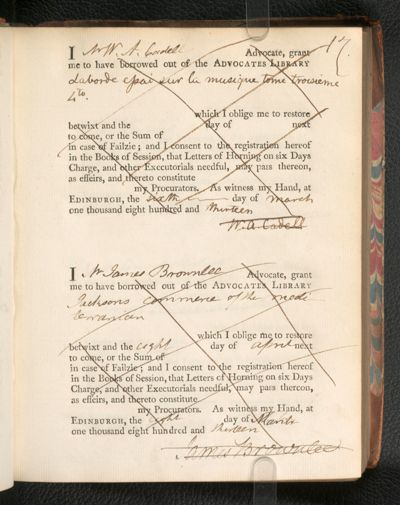 17.
I Mr W. A. Cadell Advocate, grant
me to have borrowed out of the ADVOCATES LIBRARY
Laborde essai sur la musique tome troisieme
4to.
which I oblige me to restore
betwixt and the day of next
to come, or the Sum of
in case of Failzie; and I consent to the registration hereof
in the Books of Session, that Letters of Horning on six Days
Charge, and other Executorials needful, may pass thereon,
as effeirs, and thereto constitute
my Procurators. As witness my Hand, at
EDINBURGH, the sixth day of March
one thousand eight hundred and thirteen
W. A. Cadell
I Mr James Brownlee Advocate, grant
me to have borrowed out of the ADVOCATES LIBRARY
Jacksons Commerce of the medi
terranean
which I oblige me to restore
betwixt and the eight day of april next
to come, or the Sum of
in case of Failzie; and I consent to the registration hereof
in the Books of Session, that Letters of Horning on six Days
Charge, and other Executorials needful, may pass thereon,
as effeirs, and thereto constitute
my Procurators. As witness my Hand, at
EDINBURGH, the eight day of March
one thousand eight hundred and thirteen
James Brownlee